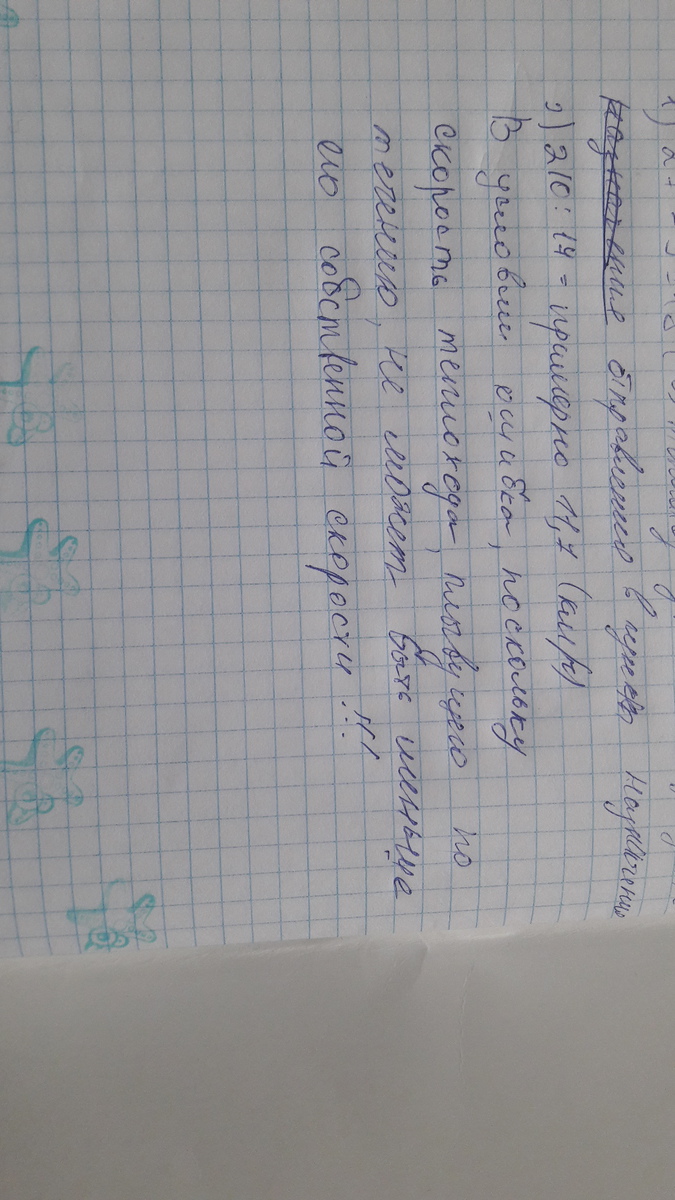 отправления в пункт назначения
2) 210:17 = примерно 11,7 (км/ч)
В условии ошибка, поскольку
скорость теплохода, плывущего по
течению, не может быть меньше
его собственной скорости!!!